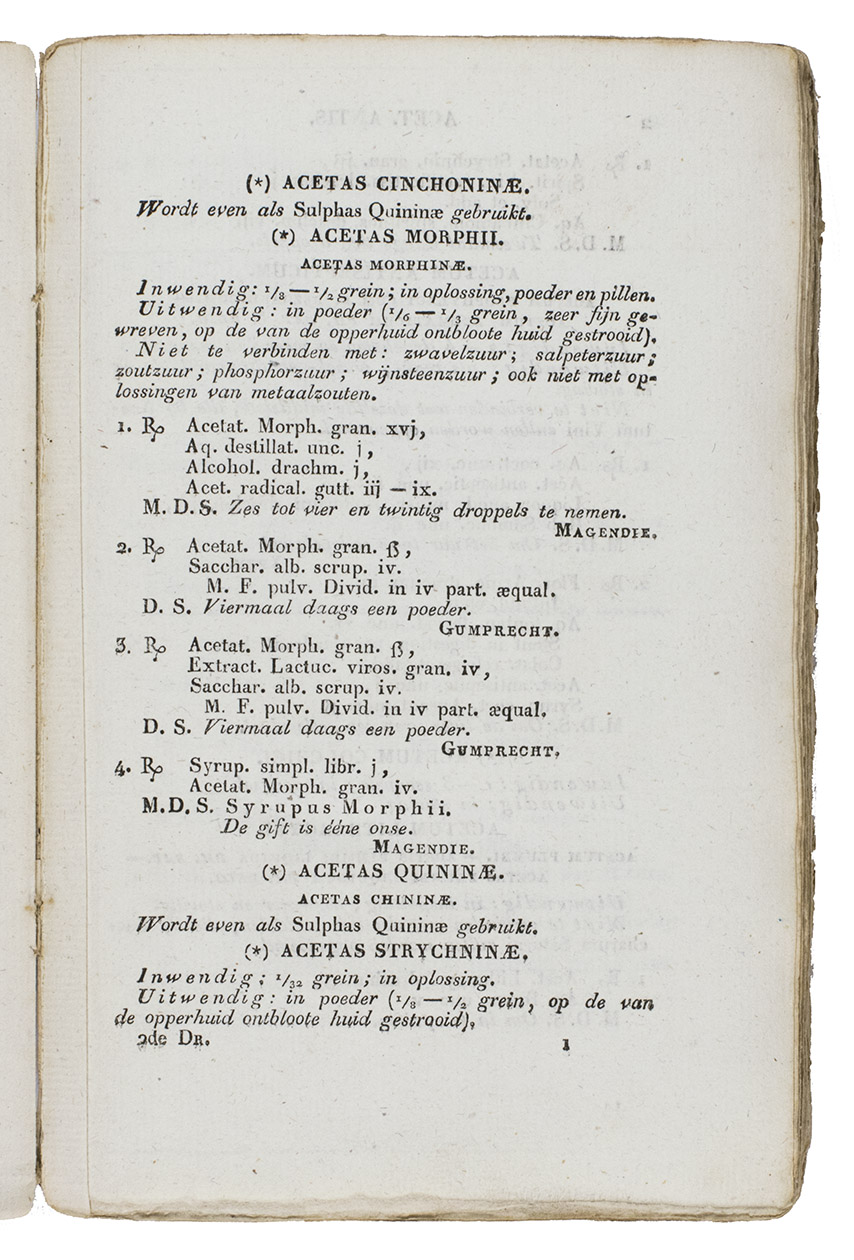 (*) ACETAS CINCHONINÆ.
Wordt even als Sulphas Quininæ gebruikt.
(*) ACETAS MORPHII.
ACETAS MORPHINÆ.
Inwendig: 1/8 — 1/2 grein; in oplossing, poeder en pillen.
Uitwendig: in poeder (1/6 — 1/3 grein, zeer fijn ge-
wreven, op de van de opperhuid ontbloote huid gestrooid).
Niet te verbinden met: zwavelzuur; salpeterzuur;
zoutzuur; phosphorzuur; wijnsteenzuur; ook niet met op-
lossingen van metaalzouten.
1. ℞ Acetat. Morph. gran. xvj,
Aq. destillat. unc. j,
Alcohol. drachm. j,
Acet. radical. gutt. iij — ix.
M. D. S. Zes tot vier en twintig droppels te nemen.
MAGENDIE.
2. ℞ Acetat. Morph. gran. ß,
Sacchar. alb. scrup. iv.
M. F. pulv. Divid. in iv part. æqual.
D. S. Viermaal daags een poeder.
GUMPRECHT.
3. ℞ Acetat. Morph. gran. ß,
Extract. Lactuc. viros. gran. iv,
Sacchar. alb. scrup. iv.
M. F. pulv. Divid. in iv part. æqual.
D. S. Viermaal daags een poeder.
GUMPRECHT.
4. ℞ Syrup. simpl. libr. j,
Acetat. Morph. gran. iv.
M. D. S. Syrupus Morphii.
De gift is ééne onse.
MAGENDIE.
(*) ACETAS QUININÆ.
ACETAS CHININÆ.
Wordt even als Sulphas Quininæ gebruikt.
(*) ACETAS STRYCHNINÆ.
Inwendig: 1/32 grein; in oplossing.
Uitwendig: in poeder (1/8 — 1/2 grein, op de van
de opperhuid ontbloote huid gestrooid).
2de DR. 1